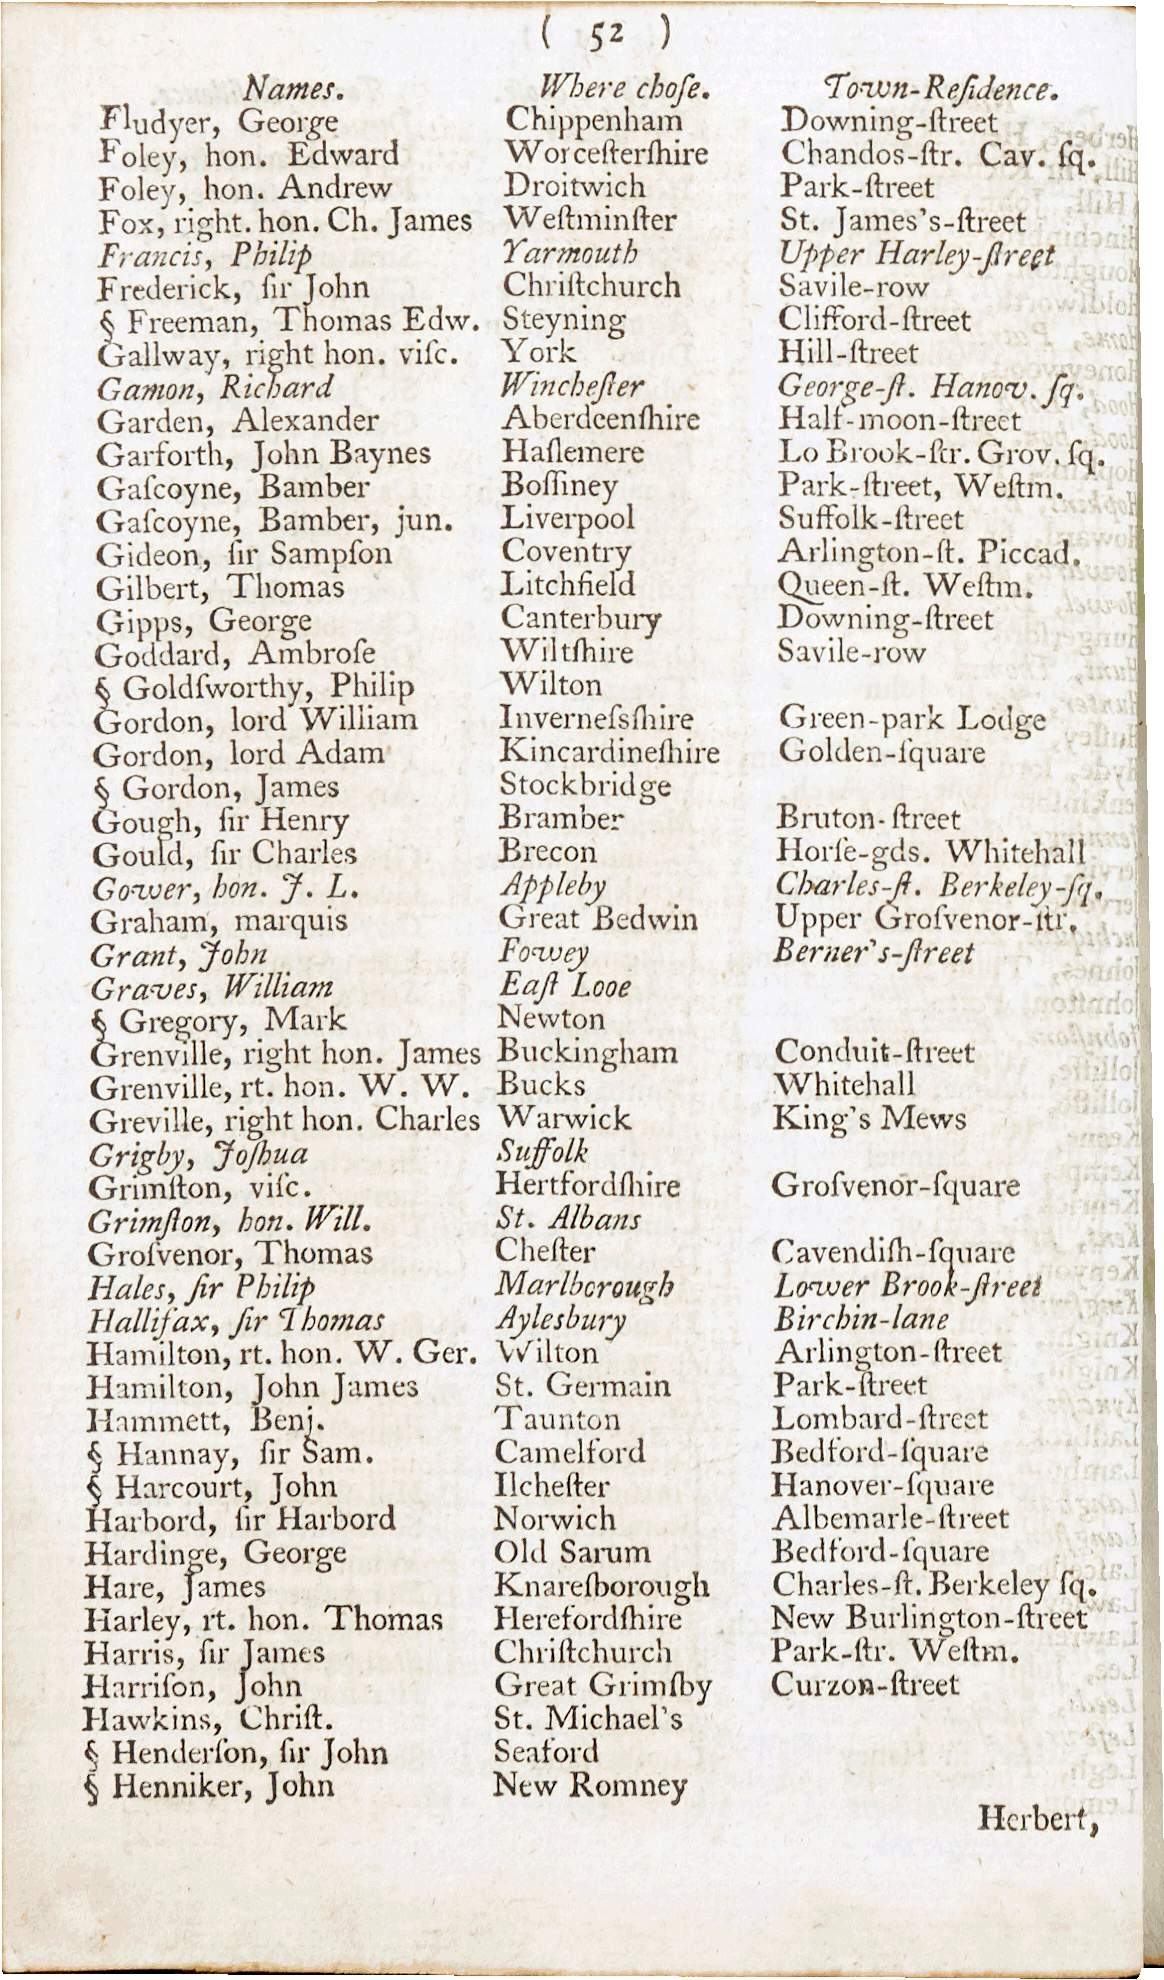 ( 52 )
Names. Where choſe. Town-Reſidence.
Fludyer, George Chippenham Downing-ſtreet
Foley, hon. Edward Worceſterſhire Chandos-ſtr. Cav. ſq.
Foley, hon. Andrew Droitwich Park-ſtreet
Fox, right. hon. Ch. James Weſtminſter St. James's-ſtreet
Francis, Philip Yarmouth Upper Harley-ſtreet
Frederick, ſir John Chriſtchurch Savile-row
§ Freeman, Thomas Edw. Steyning Clifford-ſtreet
Gallway, right hon. viſc. York Hill-ſtreet
Gamon, Richard Wincheſter George-ſt. Hanov. ſq.
Garden, Alexander Aberdeenſhire Half-moon-ſtreet
Garforth, John Baynes Haſlemere Lo Brook-ſtr. Grov. ſq.
Gaſcoyne, Bamber Boſſiney Park-ſtreet, Weſtm.
Gaſcoyne, Bamber, jun. Liverpool Suffolk-ſtreet
Gideon, ſir Sampſon Coventry Arlington-ſt. Piccad.
Gilbert, Thomas Litchfield Queen-ſt. Weſtm.
Gipps, George Canterbury Downing-ſtreet
Goddard, Ambroſe Wiltſhire Savile-row
§ Goldſworthy, Philip Wilton
Gordon, lord William Inverneſsſhire Green-park Lodge
Gordon, lord Adam Kincardineſhire Golden-ſquare
§ Gordon, James Stockbridge
Gough, ſir Henry Bramber Bruton-ſtreet
Gould, ſir Charles Brecon Horſe-gds. Whitehall
Gower, hon. J. L. Appleby Charles-ſt. Berkeley-ſq.
Graham, marquis Great Bedwin Upper Groſvenor-ſtr.
Grant, John Fowey Berner's-ſtreet
Graves, William Eaſt Looe
§ Gregory, Mark Newton
Grenville, right hon. James Buckingham Conduit-ſtreet
Grenville, rt. hon. W. W. Bucks Whitehall
Greville, right hon. Charles Warwick King's Mews
Grigby, Joſhua Suffolk
Grimſton, viſc. Hertfordſhire Groſvenor-ſquare
Grimſton, hon. Will. St. Albans
Groſvenor, Thomas Cheſter Cavendiſh-ſquare
Hales, ſir Philip Marlborough Lower Brook-ſtreet
Hallifax, ſir Thomas Aylesbury Birchin-lane
Hamilton, rt. hon. W. Ger. Wilton Arlington-ſtreet
Hamilton, John James St. Germain Park-ſtreet
Hammett, Benj. Taunton Lombard-ſtreet
§ Hannay, ſir Sam. Camelford Bedford-ſquare
§ Harcourt, John Ilcheſter Hanover-ſquare
Harbord, ſir Harbord Norwich Albemarle-ſtreet
Hardinge, George Old Sarum Bedford-ſquare
Hare, James Knareſborough Charles-ſt. Berkeley ſq.
Harley, rt. hon. Thomas Herefordſhire New Burlington-ſtreet
Harris, ſir James Chriſtchurch Park-ſtr. Weſtm.
Harriſon, John Great Grimſby Curzon-ſtreet
Hawkins, Chriſt. St. Michael's
§ Henderſon, ſir John Seaford
§ Henniker, John New Romney
Herbert,